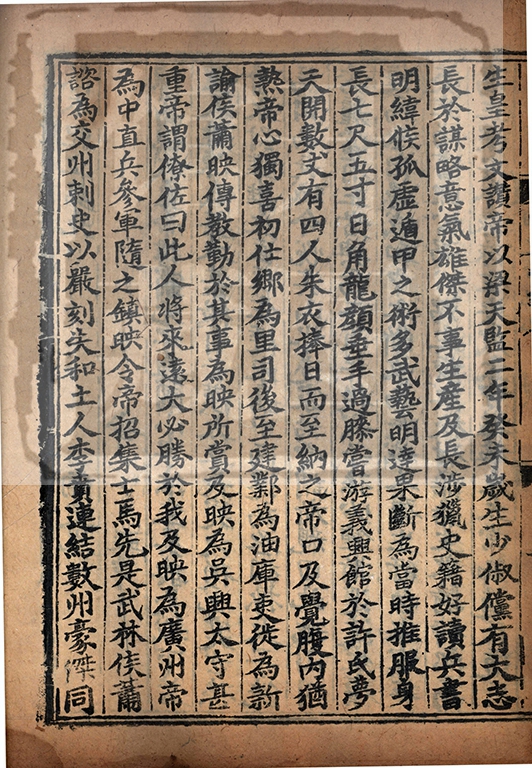 生皇考文讚帝以梁天監二年癸未歲生少俶儻有大志
長於謀略意氣雄傑不事生産及長涉獵史籍好讀兵書
明緯候孤虛遁甲之術多武藝明達果斷為當時推服身
長七尺五寸日角龍顔垂手過膝嘗游義興館於許氏夢
天開數丈有四人朱衣捧日而至納之帝口及覺腹内猶
熱帝心獨喜初仕郷為里司後至建鄴為油庫吏從為新
諭侯蕭映傳教勤於其事為映所賞及映為吳興太守甚
重帝謂僚佐曰此人將來遠大必勝於我及映為廣州帝
為中直兵參軍隨之鎮映令帝招集士馬先是武林侯蕭
諮為交州刺史以嚴刻失和土人李賁連結數州豪傑同